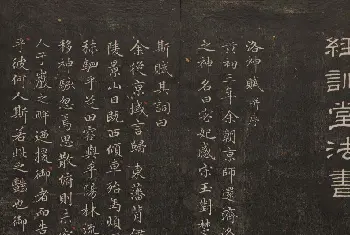 經訓堂法書
洛神賦 并序
黃初三年余朝京師還濟洛
之神名曰宓妃感宋王對楚
斯賦其詞曰
余從京域言歸東藩背伊
陵景山日既西傾車殆馬煩
秣駟乎芝田容與乎陽林流
移神駭忽焉思散俯則未察
人于巖之畔迺援御者而告
乎彼何人斯若此之豔也御